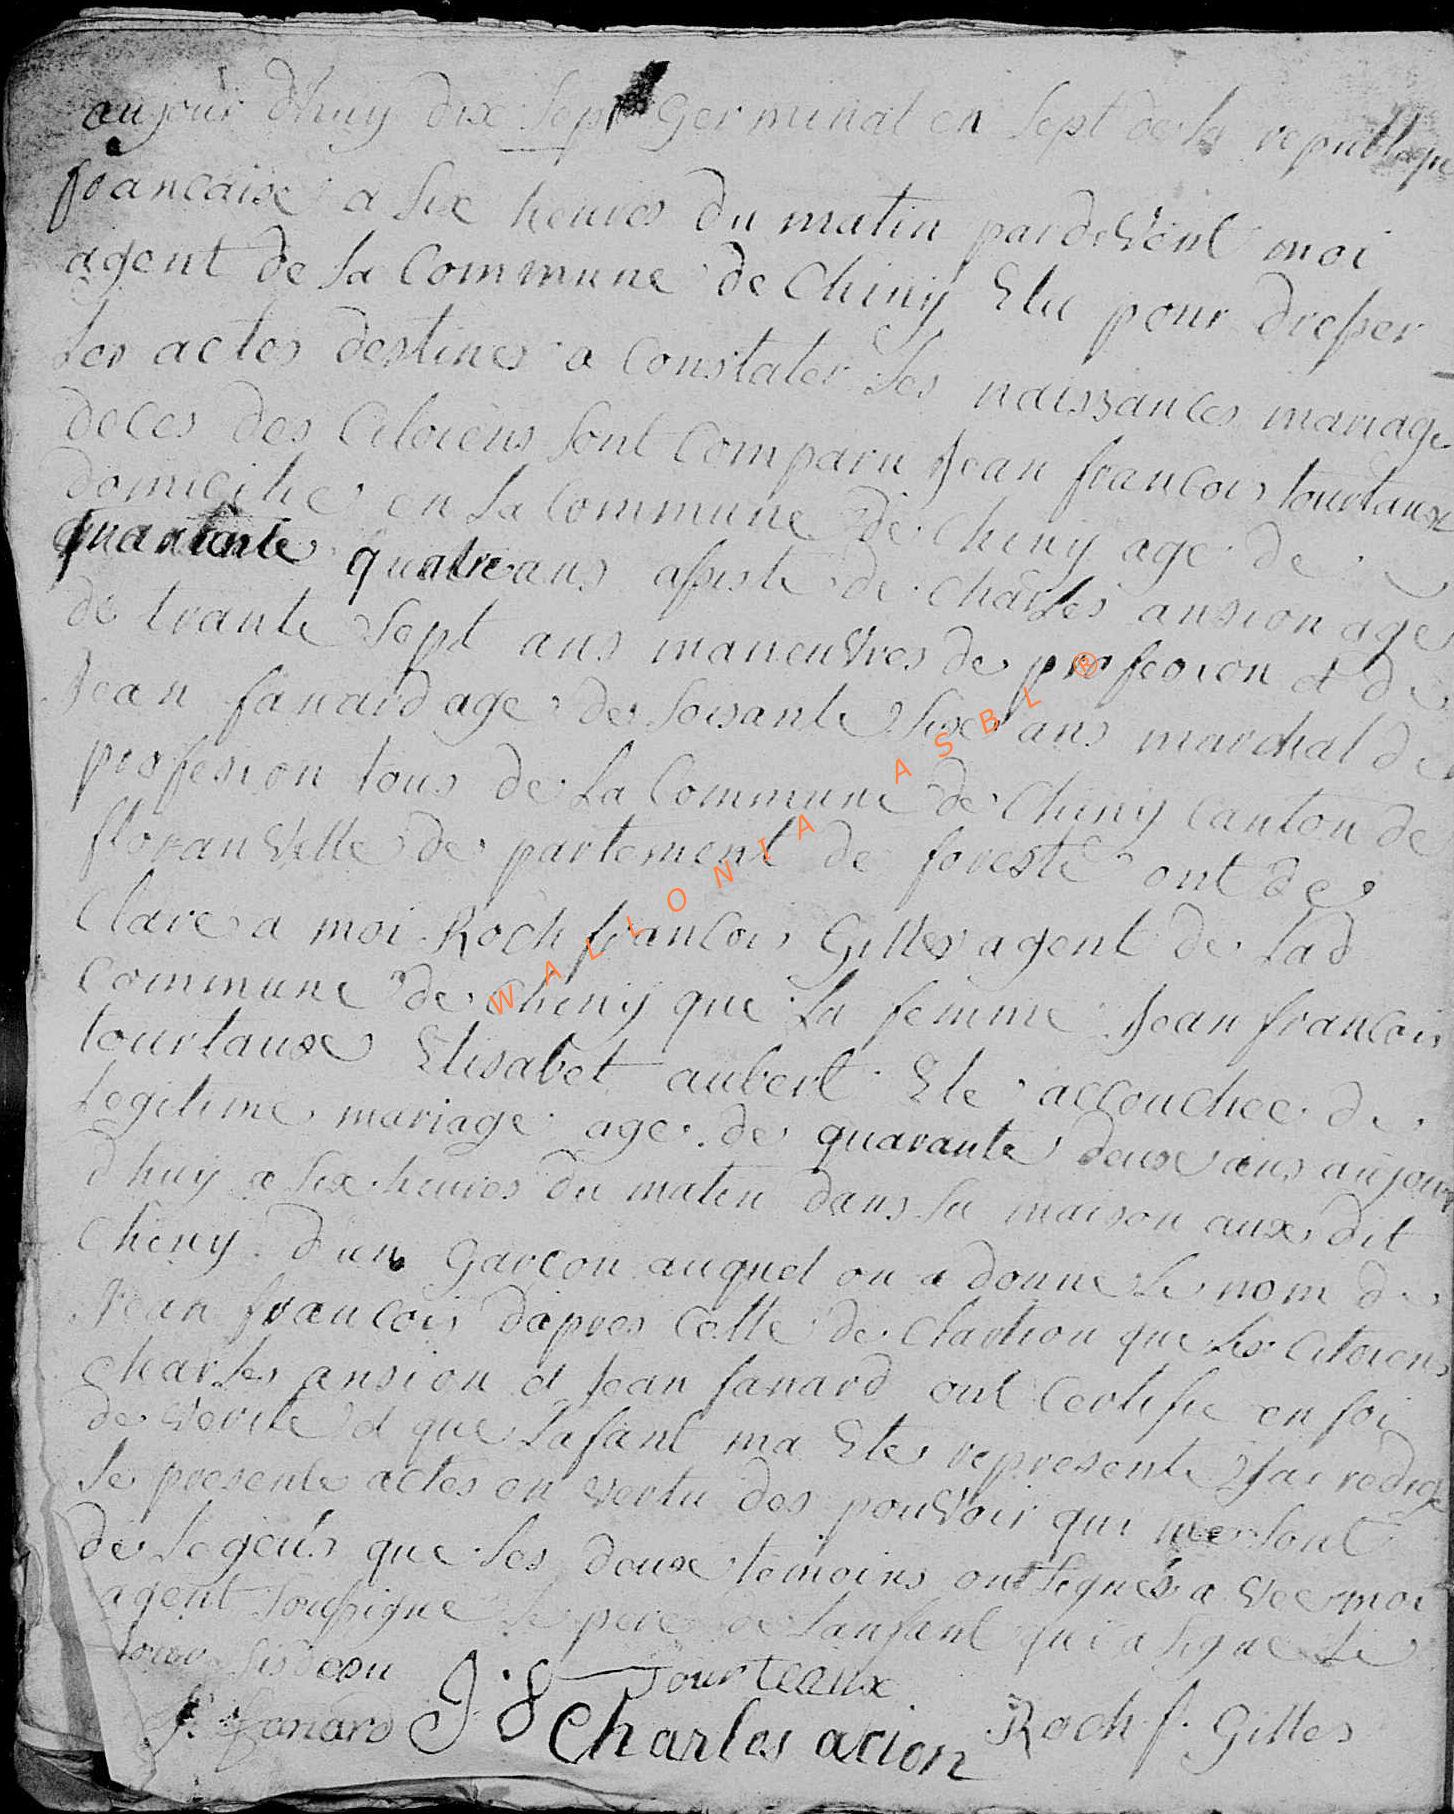 aujour dhuy dix sept Germinal en sept de la republique
francaise a six heures du matin pardevent moi
agent de la commune de Chiny Elu pour dresser
les actes destines a constater les naissances mariage
deces des Citoiens sont comparu Jean francois tourtaux
domicilie en la commune de chiny age de
quarante quatre ans assiste de charles ansion age
de trante sept ans maneuvres de profesion et de
Jean fanard age de soisante six ans marchal de
profesion tous de la Commune de Chiny canton de
floranville de partement de foreste ont de
Clare a moi Roch francois Gilles agent de lad
commune de chiny que la femme Jean francois
tourtaux Elisabet aubert Ete accouchee de
legitime mariage age de quarante deux ans aujour
dhuy a six heures du matin dans sa maison aux dit
chiny d'un garcon auquel on a donne le nom de
Jean francois dapres cette de clartion que les citoiens
charles ansion et Jean fanard ont certifie en foi
de verite et que lafant ma Ete represente Jai redige
le presente actes en vertu des pouvoir qui me sont
de legués que les deux temoins ont signés a vec moi
agent soussigne le pere de lanfant qui a signe le
jour
J: fanard J: f Tourteaux
Charles acion Roch f. Gilles
WALLONIA ASBL ®